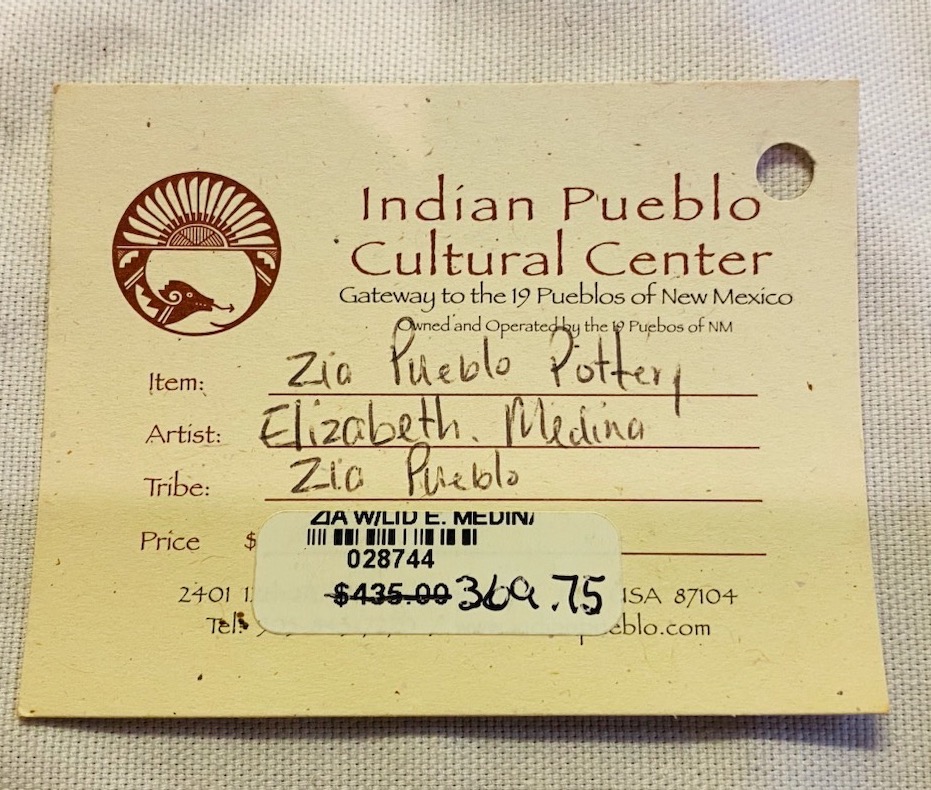 Indian Pueblo
Cultural Center
Gateway to the 19 Pueblos of New Mexico
Owned and Operated by the 19 Puebos of NM
Item: Zia Pueblo Pottery
Artist: Elizabeth. Medina
Tribe: Zia Pueblo
Price $
ZIA W/LID E. MEDINA
028744
$435.00 369.75
2401 USA 87104
Tel: eblo.com